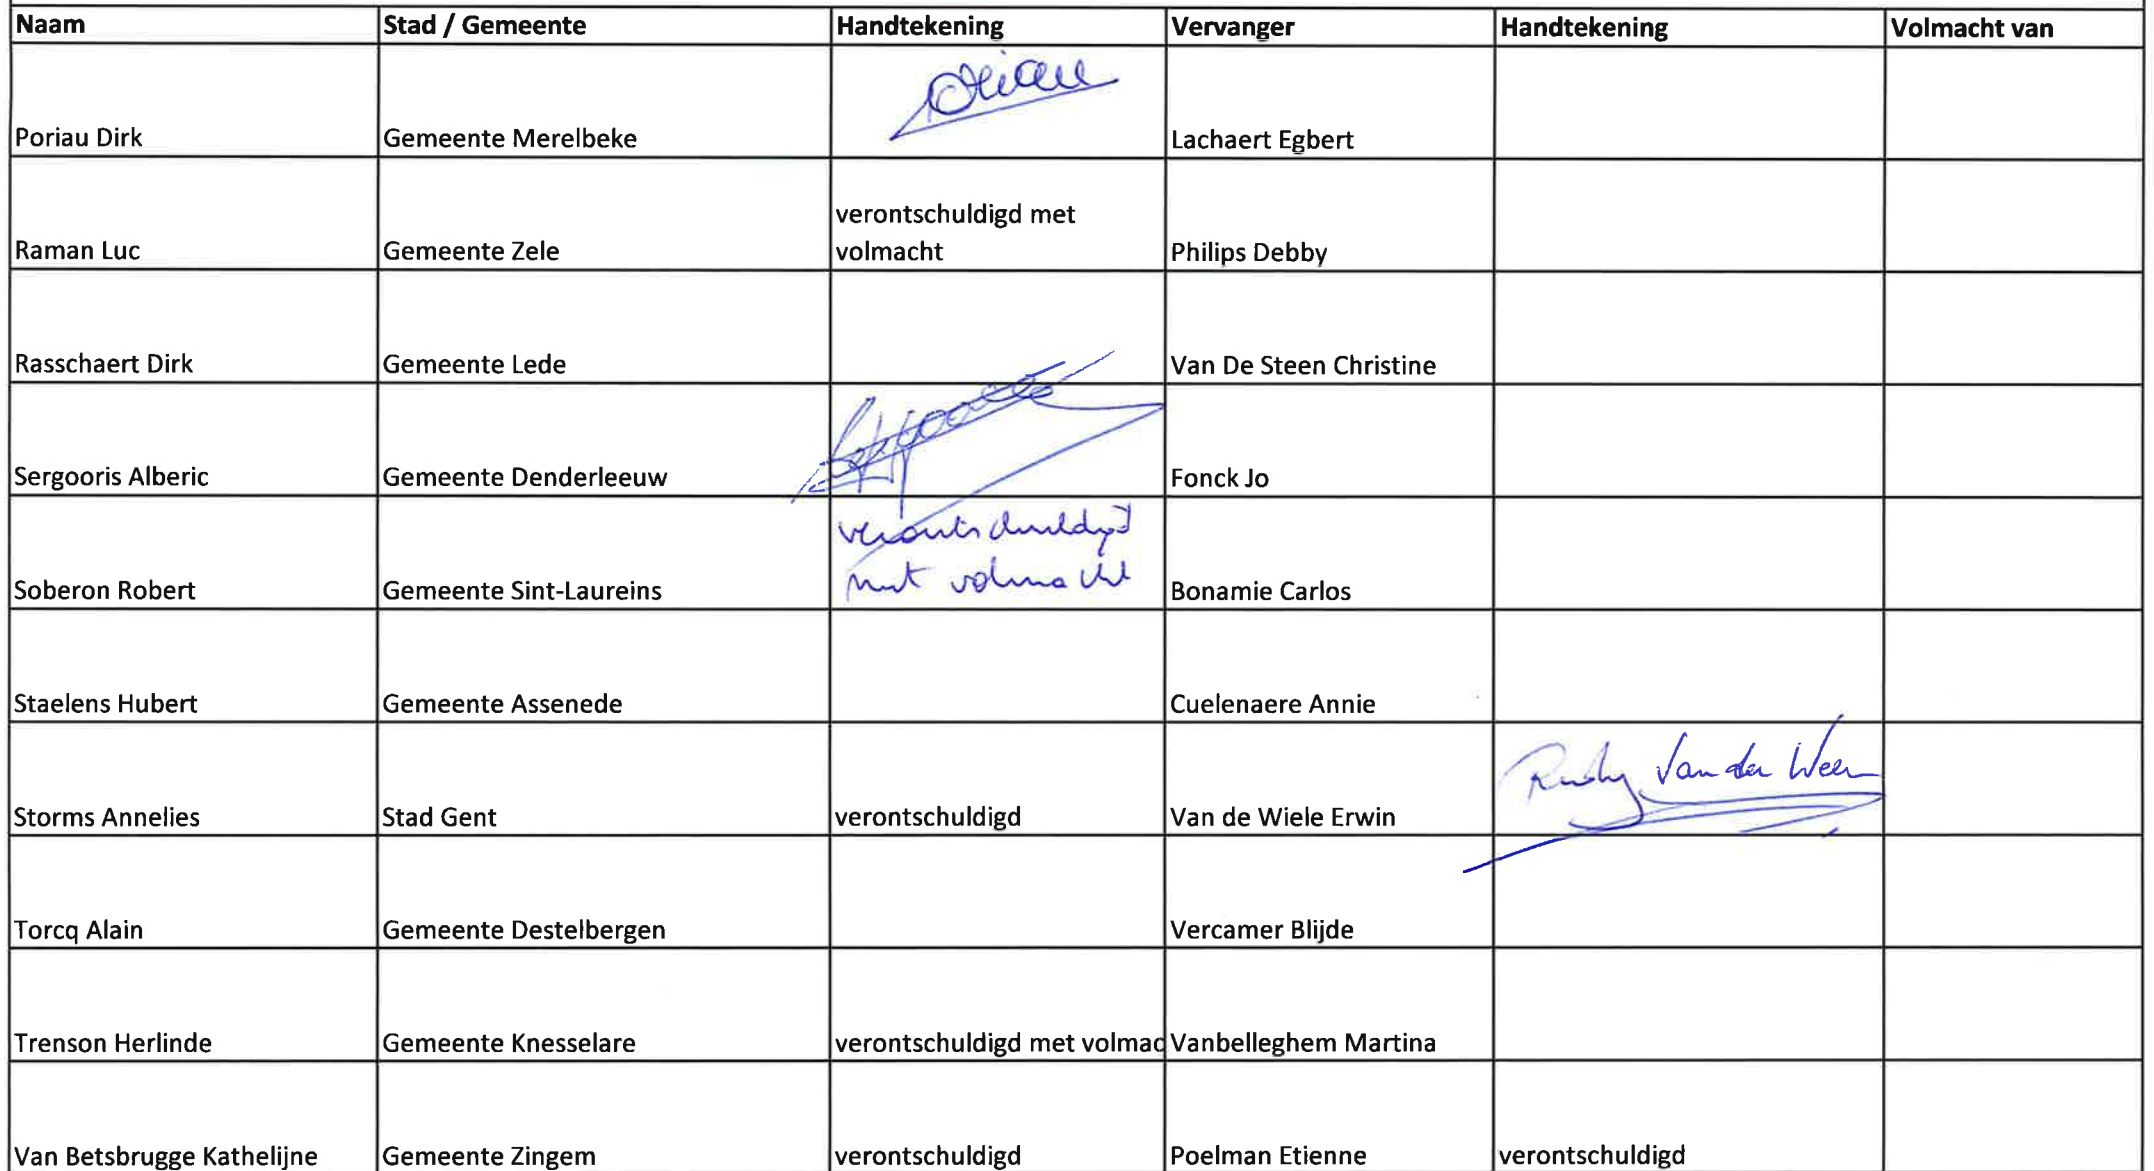 Naam Stad / Gemeente Handtekening Vervanger Handtekening Volmacht van
Poriau Dirk Gemeente Merelbeke Lachaert Egbert
verontschuldigd met
Raman Luc Gemeente Zele volmacht Philips Debby
Rasschaert Dirk Gemeente Lede Van De Steen Christine
Sergooris Alberic Gemeente Denderleeuw Fonck Jo
verontschuldigd
met volmacht
Soberon Robert Gemeente Sint-Laureins Bonamie Carlos
Staelens Hubert Gemeente Assenede Cuelenaere Annie
Rudy Van der Weer
Storms Annelies Stad Gent verontschuldigd Van de Wiele Erwin
Torcq Alain Gemeente Destelbergen Vercamer Blijde
Trenson Herlinde Gemeente Knesselare verontschuldigd met volmac Vanbelleghem Martina
Van Betsbrugge Kathelijne Gemeente Zingem verontschuldigd Poelman Etienne verontschuldigd